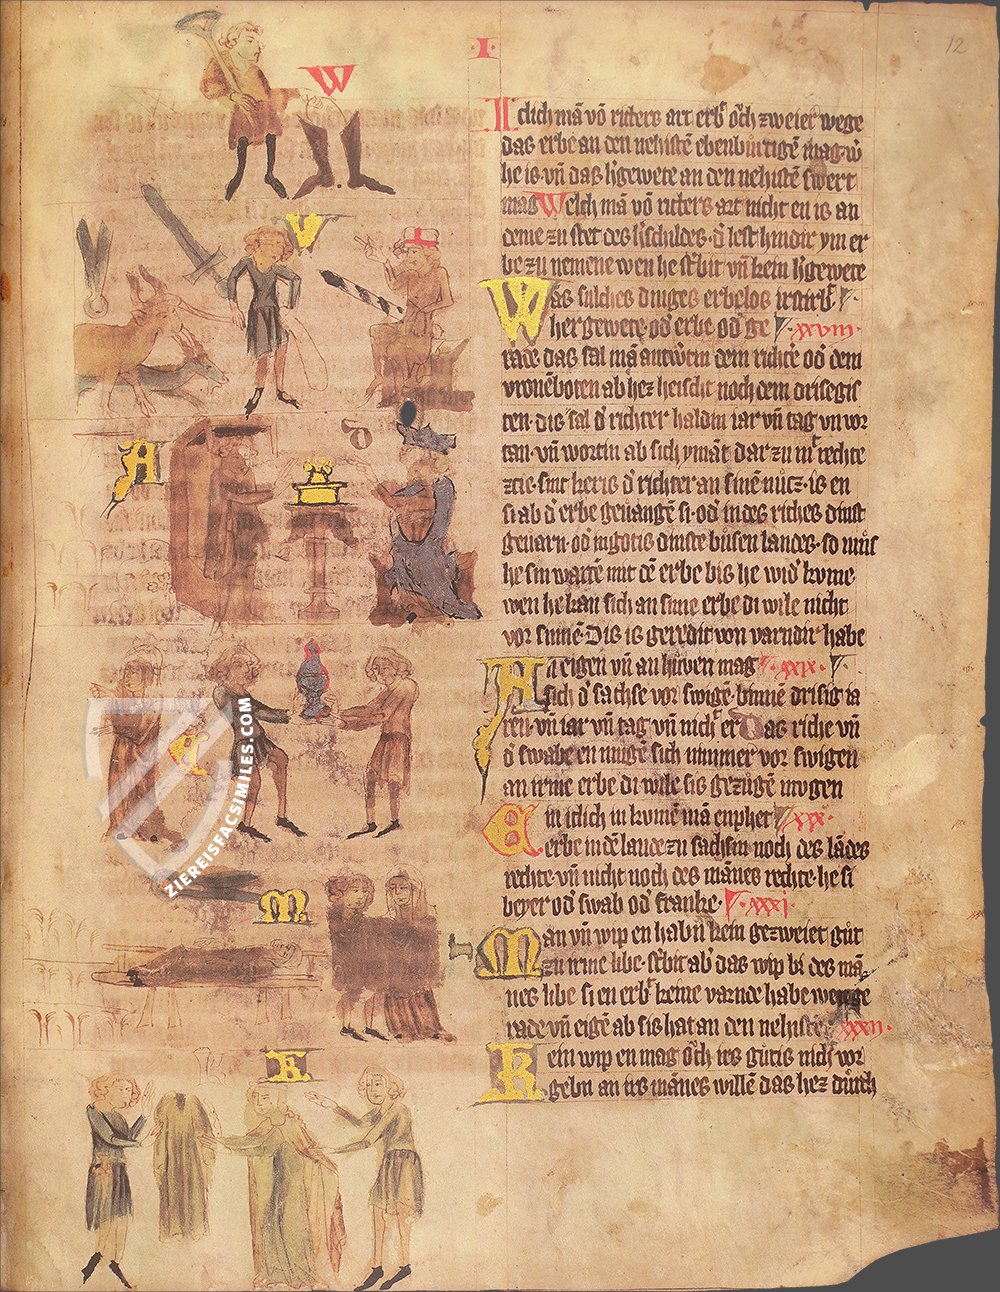 ·I·
12
Iclich mā vō ritters art erb̕ och zweier wege
das erbe an den nehistē ebenbu̕rtigē mag·w̄
he is vn̄ das h̕gewete an den nehistē swert
mag Welch mā vō ritters art nicht en is an
deme zu stet des h̕schildes· d̕ lest hindir ym er
be zu nemene wen he st̕bit vn̄ kein h̕gewete
Was sulches dinges erbelos irstirb̕t
her gewete od̕ erbe od̕ ge ·xxviii·
rade das sal mā antw̕rtin dem richt̕e od̕ dem
vronēboten ab hez heischt noch dem drisegis
ten· dis sal d̕ richter haldin iar vn̄ tag vn vor
tan· vn̄ wortin ab sich ymāt dar zu m̕ rechte
zcie· sint keris d̕ richter an sinē nu̕cz· is en
si ab d̕ erbe geuangē si· od̕ in des riches dinst
geuarn· od̕ in gotis dinste busen landes· so mus
he sin wartē mit dē erbe bis he wid̕ kvme
wen he kan sich an sime erbe di wile nicht
vor sumē· Dis is geredit von varndir habe
An eigen vn̄ an hu̕ven mag ·xxix·
sich d̕ sachse vor swigē· binnē drisig ia
ren· vn̄ iar vn̄ tag vn̄ nich̕ er Das riche vn̄
d̕ swabe en mugē sich nimmer vor swigen
an irme erbe di wile sis gezu̕gē mogen
Ein iclich in kvmē mā enphet ·xxx·
erbe in dē lande zu sachsin noch des lādes
rechte· vn̄ nicht noch des mānes rechte· he si
beyer od̕ swab od̕ franke· ·xxxi·
Man vn̄ wip en habin kein gezweiet gu̕t
zu irme libe· st̕bit ab̕ das wip bi des mā
nes libe si en erb̕t keine varnde habe wen ge
rade vn̄ eigē ab sis hat an den nehistē ·xxxii·
Kein wip en mag och irs gutis nich̕ vor
gebn an irs mānes willē das hez du̕rch
W
V
A
D
E
M
K
ZIEREISFACSIMILES.COM